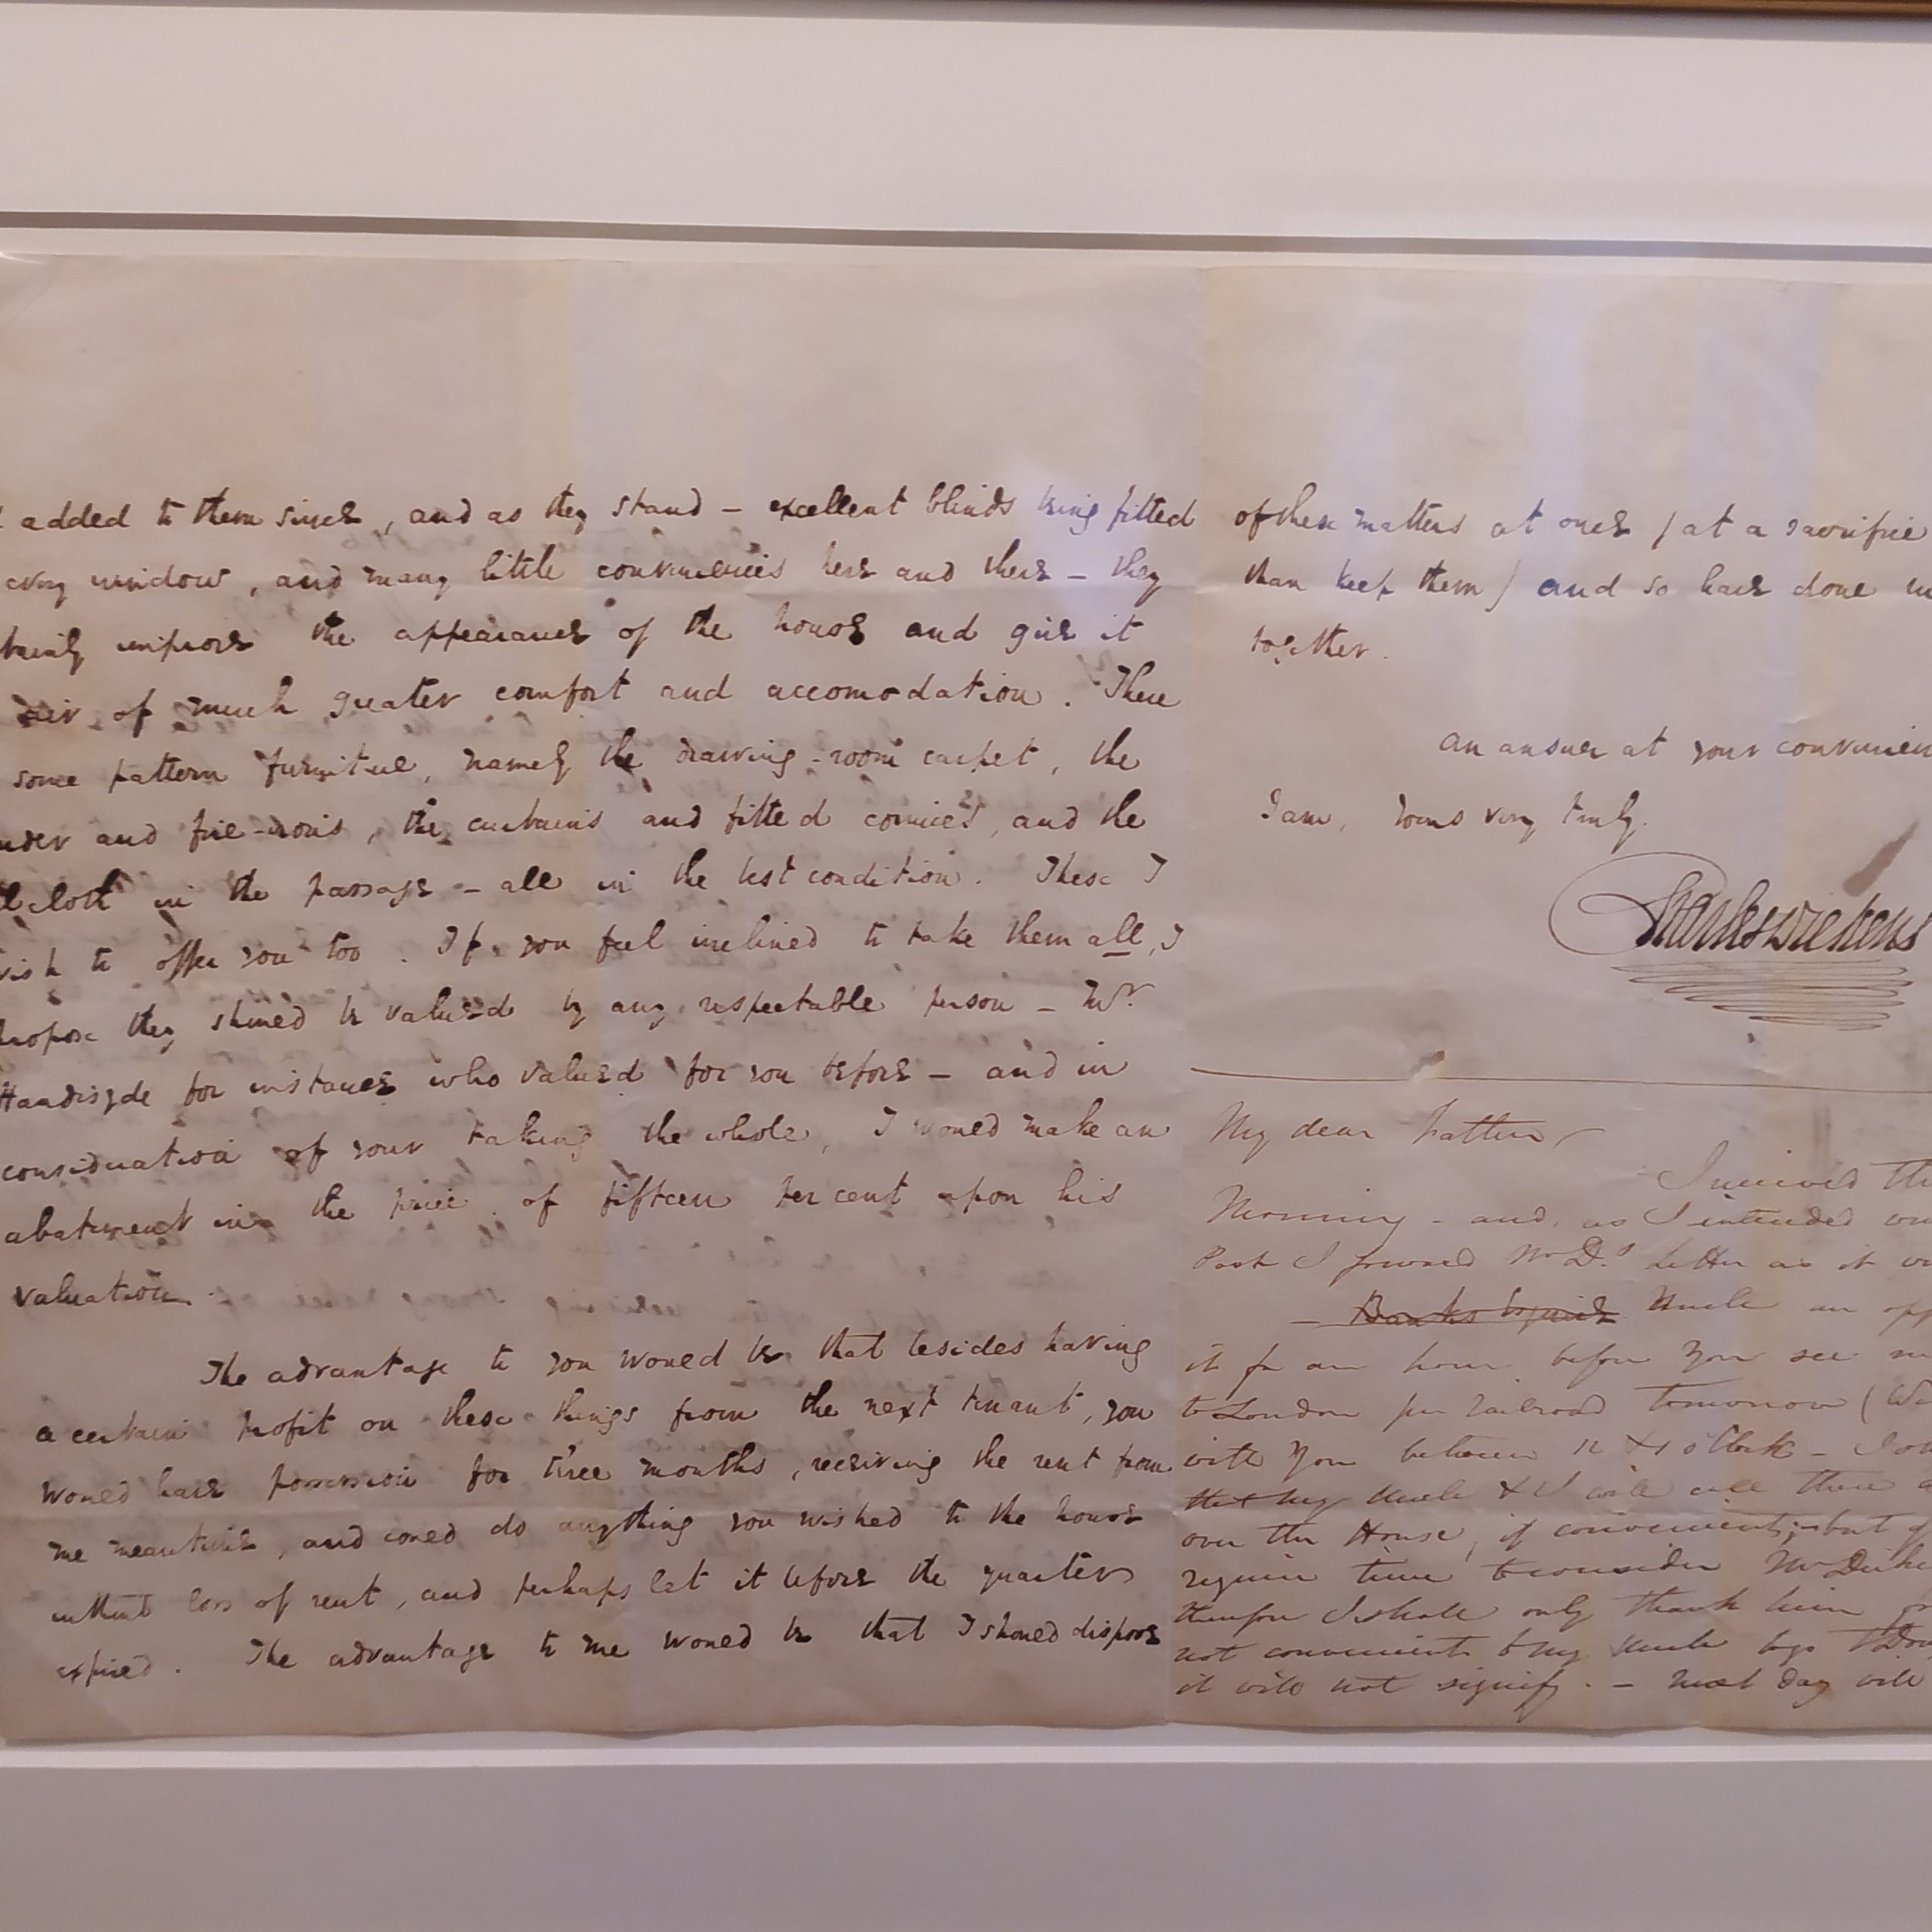 added to them since, and as they stand – excellent blinds being fitted
every window, and many little conveniencies here and there – they
improve the appearance of the house and give it
air of much greater comfort and accomodation. There
some pattern furniture, namely the drawing-room carpet, the
and fire-irons, the curtains and fitted cornices, and the
cloth in the passage – all in the best condition. These I
wish to offer you too. If you feel inclined to take them all, I
propose they should be valued by any respectable person – Mr.
Handisyde for instance who valued for you before – and in
consideration of your taking the whole, I would make an
abatement in the price of fifteen per cent upon his
valuation.
The advantage to you would be that besides having
a certain profit on these things from the next tenant, you
would have possession for three months, receiving the rent from
me meantime, and could do anything you wished to the house
without loss of rent, and perhaps let it before the quarter
expired. The advantage to me would be that I should dispose
of these matters at once (at a sacrifice
than keep them) and so have done
together.
An answer at your
I am, Yours very truly.
Charles Dickens
My dear Father,
I received
Morning – and, as I intended
Post I forward Mr D.s letter as it
– Uncle an
it for an hour before you see
to London per railroad tomorrow
with you between 12 & 1 o'Clock –
that my Uncle & I will call there
over the House, if convenient; – but
require time to consider Mr
therefore I shall only thank him
not convenient to my Uncle to go
it will not signify. – next day will